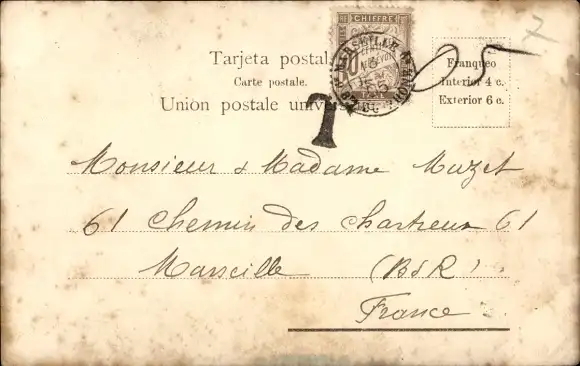 Tarjeta postal
Carte postale.
Union postale
CHIFFRE
MARSEILLE
Franqueo
Interior 4 c.
Exterior 6 c.
7
T
Monsieur & Madame Muzet
61 Chemin des Chartreux 61
Marseille (BdR)
France